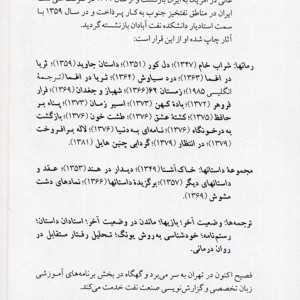 ایران در مناطق نفتخیز جنوب به کار پرداخت و در سال ۱۳۵۹ با
سمت استادیار دانشکده نفت آبادان بازنشسته گردید.
آثار چاپ شده او از این قرار است:
رمانها: شراب خام (۱۳۴۷)؛ دل کور (۱۳۵۱)؛ داستان جاوید (۱۳۵۹)؛ ثریا
در اغما (۱۳۶۳)؛ درد سیاوش (۱۳۶۴)؛ ثریا در اغما (ترجمهٔ
انگلیسی ۱۹۸۵)؛ زمستان ۶۲ (۱۳۶۶)؛ شهباز و جغدان (۱۳۶۹)؛ فرار
فروهر (۱۳۷۲)؛ بادهٔ کهن (۱۳۷۳)؛ اسیر زمان (۱۳۷۳)؛ پناه بر
حافظ (۱۳۷۵)؛ کشتهٔ عشق (۱۳۷۶)؛ طشت خون (۱۳۷۶)؛ بازگشت
به درخونگاه (۱۳۷۶)؛ نامه‌ای به دنیا (۱۳۷۶)؛ لاله برافروخت
(۱۳۷۹)؛ در انتظار (۱۳۷۹)؛ گردابی چنین هایل (۱۳۸۱).
مجموعه داستانها: خاک آشنا (۱۳۴۹)؛ دیدار در هند (۱۳۵۳)؛ عقد و
داستانهای دیگر (۱۳۵۷)؛ برگزیدهٔ داستانها (۱۳۶۶)؛ نمادهای دشت
مشوش (۱۳۶۹).
ترجمه‌ها: وضعیت آخر؛ بازیها؛ ماندن در وضعیت آخر؛ استادان داستان؛
رستم‌نامه؛ خودشناسی به روش یونگ؛ تحلیل رفتار متقابل در
روان درمانی.
فصیح اکنون در تهران به سر می‌برد و گهگاه در بخش برنامه‌های آموزشی
زبان تخصصی و گزارش‌نویسی صنعت نفت خدمت می‌کند.